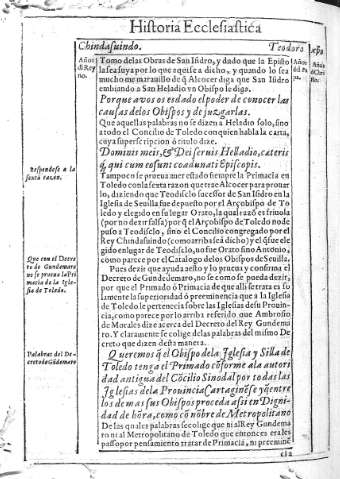 Historia Ecclesiastica
Chindasuindo.
Teodoro
Años del Rey no.
Años del Pa pa.
Años de Chri sto.
Tomo delas Obras de San Isidro, y dado que la Episto
la sea suya por lo que aqui se a dicho, y quando lo sea
mucho me marauillo de q̃ Alcocer diga que San Isidro
embiando a San Heladio vn Obispo le diga.
Porque a vos os es dado el poder de conocer las
causas delos Obispos y de juzgarlas.
Que aquellas palabras no se dizen a Heladio solo, sino
a todo el Concilio de Toledo con quien habla la carta,
cuya superscripcion o titulo dize.
Dominis meis, & Dei seruis Helladio, cæteris
q̃, qui cum eo sunt coadunati Episcopis.
Respondese a la sexta razon.
Tampoco se prueua auer estado siempre la Primacia en
Toledo con la sexta razon que trae Alcocer para pronar
lo, diziendo que Teodisclo sucessor de San Isidro en la
Iglesia de Seuilla fue depuesto por el Arçobispo de To
ledo y elegido en su lugar Orato, la qual razõ es friuola
(por no dezir falsa) por q̃ el Arçobispo de Toledo no de
puso a Teodisclo, sino el Concilio congregado por el
Rey Chindasuindo (como arriba se a dicho) y el q̃ fue ele
gido en lugar de Teodisclo, no fue Orato sino Antonio,
como parece por el Catalogo delos Obispos de Seuilla.
Que con el Decre
to de Gundemaro
no se prueua la Pri
macia de la Igle
sia de Toledo.
Pues dezir que ayuda a esto y lo prueua y confirma el
Decreto de Gundemaro, no es como se pueda dezir,
por que el Primado o Primacia de que alli se trata es so
lamente la superioridad o preeminencia que a la Iglesia
de Toledo le pertenecia sobre las Iglesias de su Prouin
cia, como parece por lo arriba referido que Ambrosio
de Morales dize acerca del Decreto del Rey Gundema
ro, Y claramente se colige de las palabras del mismo De
creto que dizen desta manera.
Palabras del De-
creto de Gũdemaro
Queremos q̃ el Obispo de la Iglesia y Silla de
Toledo tenga el Primado cõforme a la autori
dad antigua del Cõcilio Sinodal por todas las
Iglesias de la Prouincia Cartaginẽse y q̃ entre
los de mas sus Obispos preceda assi en Digni
dad de hõra, como en nõbre de Metropolitano
De las quales palabras se colige que ni al Rey Gundema
ro ni al Metropolitano de Toledo que entonces era les
passo por pensamiento tratar de Primacia, ni preeminẽ
cia